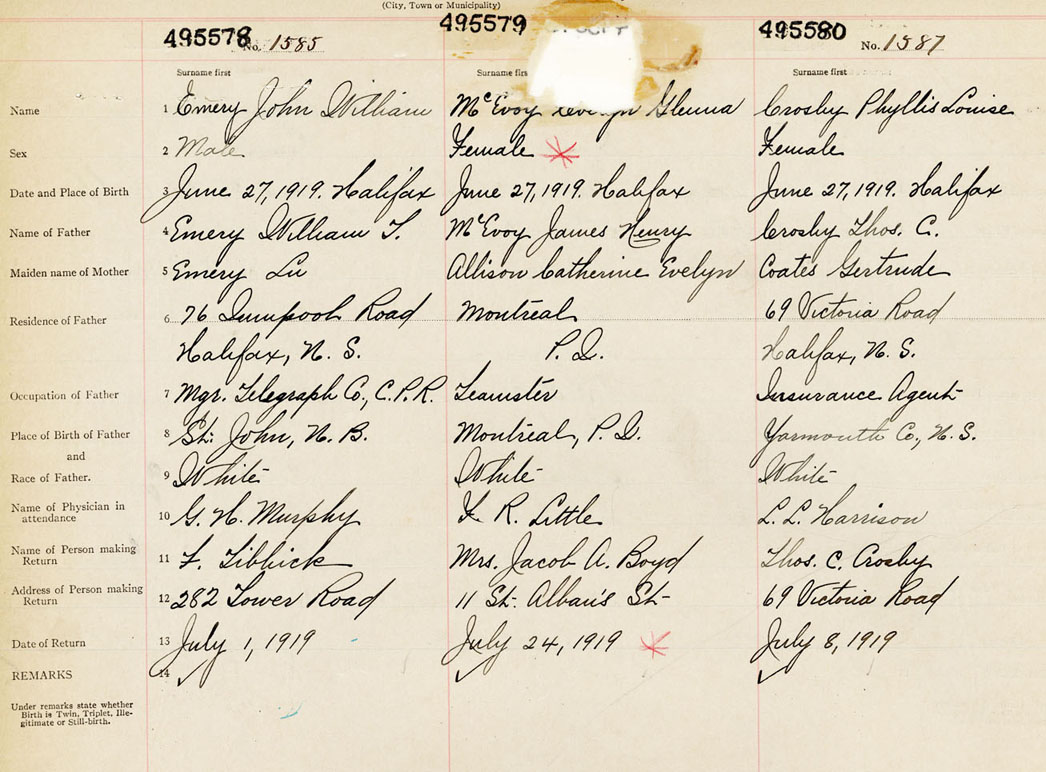 (City, Town or Municipality)
495578 No. 1585
495579
495580 No. 1587
Surname first
Surname firs
Surname first
Name 1 Emery John William
McEvoy Evelyn Glenna
Crosby Phyllis Louise
Sex 2 Male
Female
Female
Date and Place of Birth 3 June 27, 1919. Halifax
June 27, 1919. Halifax
June 27, 1919. Halifax
Name of Father 4 Emery William T.
McEvoy James Henry
Crosby Thos. C.
Maiden name of Mother 5 Emery Lu
Allison Catherine Evelyn
Coates Gertrude
Residence of Father 6 76 Road
Montreal
69 Victoria Road
Halifax, N. S.
P. Q.
Halifax, N. S.
Occupation of Father 7 Mgr. Telegraph Co., C.P.R.
Teamster
Insurance Agent
Place of Birth of Father 8 St. John, N. B.
Montreal, P. Q.
Yarmouth Co., N. S.
and
Race of Father. 9 White
White
White
Name of Physician in
attendance 10 G. H. Murphy
F. R. Little
L. L. Harrison
Name of Person making
Return 11 F. Tibbick
Mrs. Jacob A. Boyd
Thos. C. Crosby
Address of Person making
Return 12 282 Tower Road
11 St. Alban's St
69 Victoria Road
Date of Return 13 July 1, 1919
July 24, 1919
July 8, 1919
REMARKS 14
Under remarks state whether
Birth is Twin, Triplet, Ille-
gitimate or Still-birth.